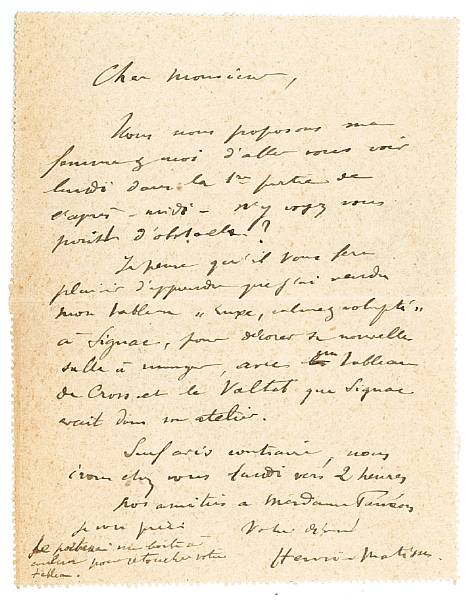 Cher Monsieur,
Nous nous proposons ma
femme & moi d'aller vous voir
lundi dans la 1re partie de
l'après-midi - N'y voyez vous
point d'obstacle ?
Je pense qu'il vous fera
plaisir d'apprendre que j'ai vendu
mon tableau "Luxe, calme & volupté"
à Signac, pour décorer sa nouvelle
salle à manger, avec un tableau
de Cross et le Valtat que Signac
avait dans son atelier.
Sauf avis contraire, nous
irons chez vous lundi vers 2 heures
Nos amitiés à Madame
je vous prie. Votre dévoué
Henri Matisse.
Je porterai ma boîte à
couleur pour retoucher votre
tableau.